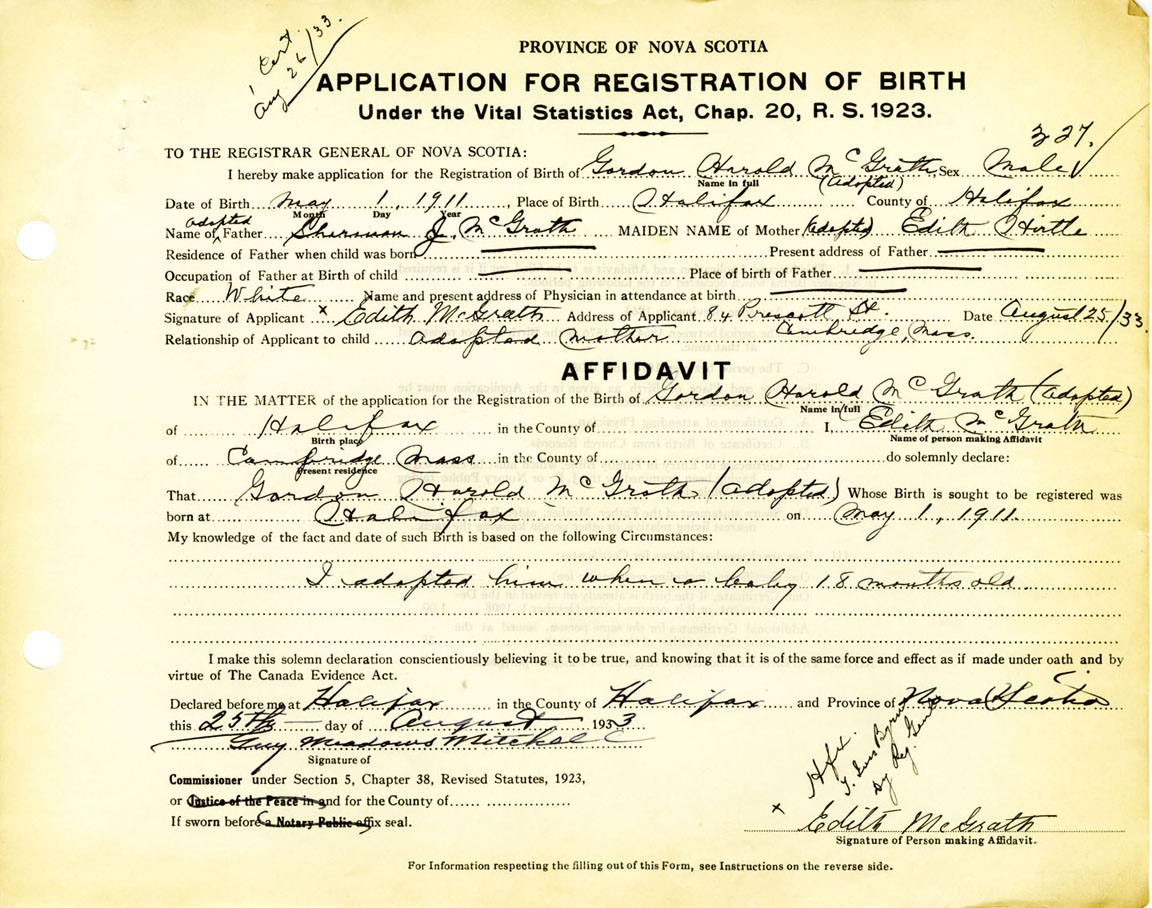 1 Cert.
Aug 26/33.
PROVINCE OF NOVA SCOTIA
APPLICATION FOR REGISTRATION OF BIRTH
Under the Vital Statistics Act, Chap. 20, R. S. 1923.
327.
TO THE REGISTRAR GENERAL OF NOVA SCOTIA:
I hereby make application for the Registration of Birth of Gordon Harold McGrath Sex Male
Name in full (Adopted)
Date of Birth May 1, 1911 Place of Birth Halifax County of Halifax
Month Day Year
adopted
Name of Father Sherman J. McGrath MAIDEN NAME of Mother (adopted) Edith Hirtle
Residence of Father when child was born Present address of Father
Occupation of Father at Birth of child Place of birth of Father
Race White Name and present address of Physician in attendance at birth
Signature of Applicant x Edith McGrath Address of Applicant 84 Prescott St. Date August 25/33.
Relationship of Applicant to child adopted mother Cambridge, Mass.
AFFIDAVIT
IN THE MATTER of the application for the Registration of the Birth of Gordon Harold McGrath (adopted)
Name in full
of Halifax in the County of I, Edith McGrath
Birth place Name of person making Affidavit
of Cambridge Mass in the County of do solemnly declare:
Present residence
That Gordon Harold McGrath (adopted) Whose Birth is sought to be registered was
born at Halifax on May 1, 1911.
My knowledge of the fact and date of such Birth is based on the following Circumstances:
I adopted him when a baby 18 months old
I make this solemn declaration conscientiously believing it to be true, and knowing that it is of the same force and effect as if made under oath and by
virtue of The Canada Evidence Act.
Declared before me at Halifax in the County of Halifax and Province of Nova Scotia
this 25th day of August 1933
Guy Meadows Mitchel
Signature of
Commissioner under Section 5, Chapter 38, Revised Statutes, 1923,
or Justice of the Peace in and for the County of
If sworn before a Notary Public affix seal.
Hfx.
Reg. Gen
x Edith McGrath
Signature of Person making Affidavit.
For Information respecting the filling out of this Form, see Instructions on the reverse side.